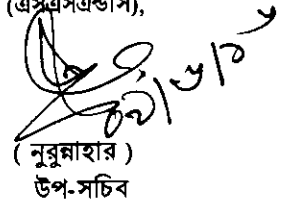 (এসএসএন্ডসি),
( নুরুন্নাহার )
উপ-সচিব